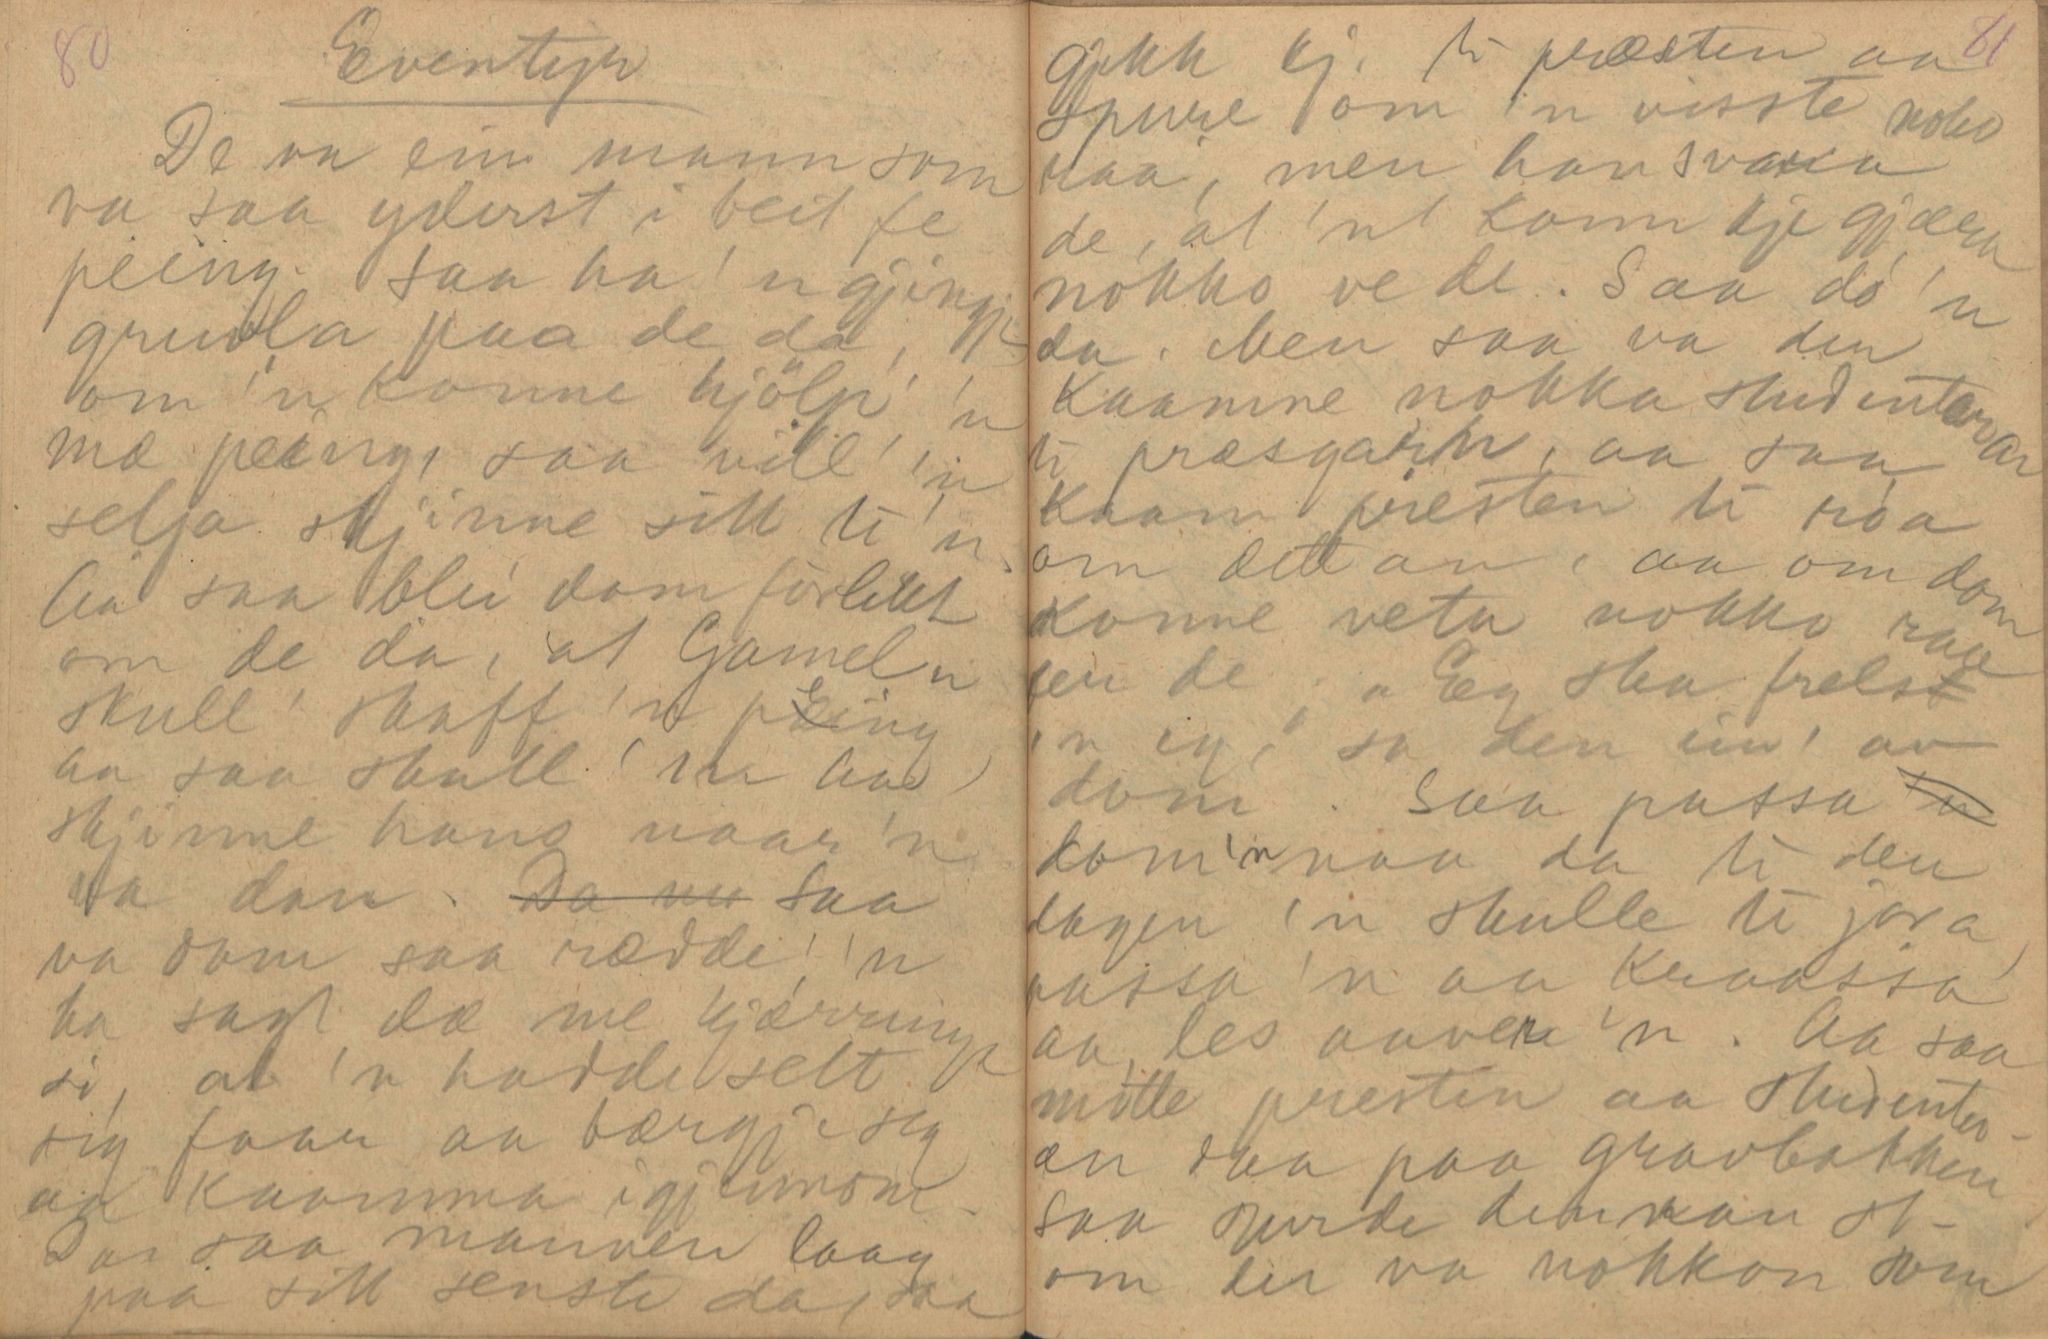 80
Eventyr
De va ein mann som
va saa yderst i beit fe
peing. Saa ha 'n gjingji
gruvla paa de da,
om 'n konne hjölp' 'n
mæ peing, saa vill' 'n
selja skjinne sitt ti 'n.
Aa saa blei dom forlikt
om de da, at Gamel'n
skull' skaff 'n peing
aa saa skull' 'n ha
skjinne hans naar 'n
va dau. Da va Saa
va dom saa rædde, 'n
ha sagt dæ me kjærringa
si, at 'n hadde selt
sig faar aa bærgje seg
aa kaamma igjennom.
Da saa mannen laag
paa sitt senste da, saa
81
gjikk kj. ti præsten aa
spure om 'n visste noko
raa, men han svara
de, at 'n konn kje gjæra
nokko ve de. Saa dó 'n
da. Men saa va den
kaamne nokka studentarar
ti præsgarn, aa saa
kaam presten ti röa
om dettan, aa om dom
konne veta nokko raae
fer de, "Eg ska frelse
'n eg," sa den ein' av
dom. Saa passa 'n
dom 'n naa da ti den
dagen 'n skulle ti jora,
passa 'n aa kraassa
aa les aaver 'n. Aa saa
mötte presten aa studenten-
en daa paa gravbakken
Saa spurde den st-
om der va nokkon som